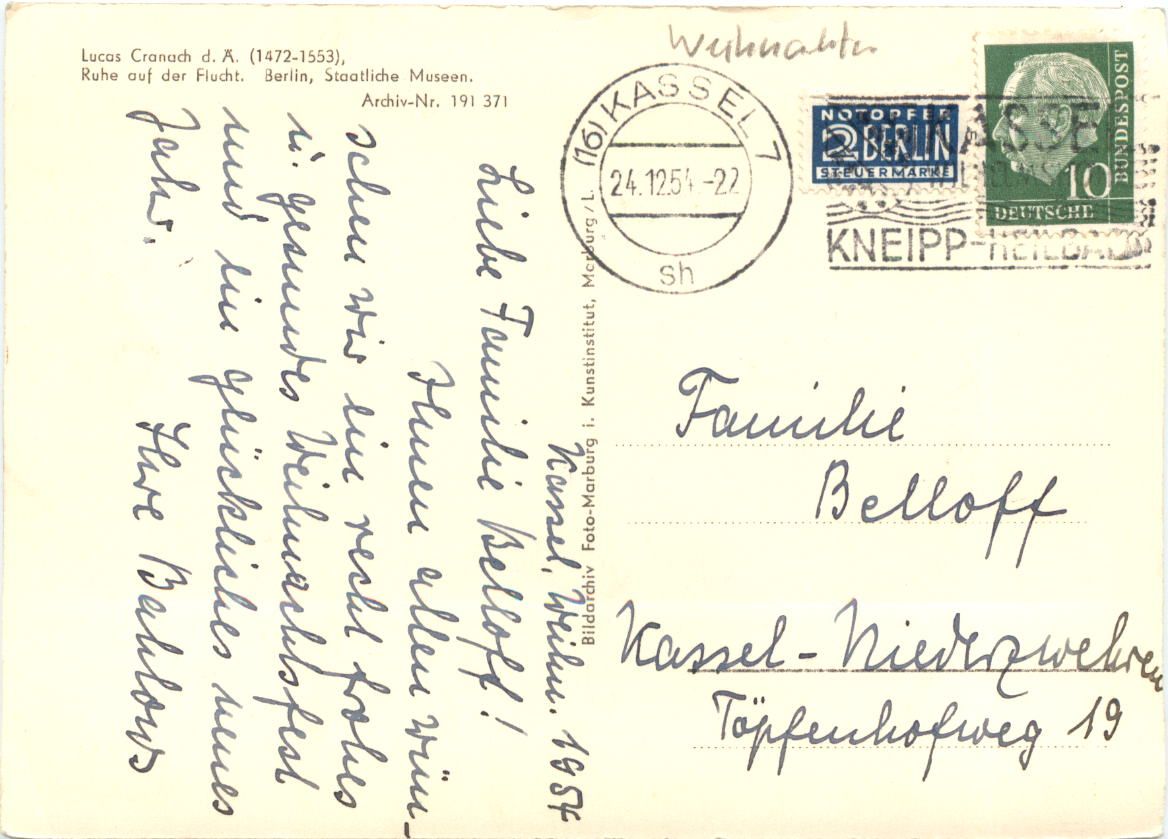 Lucas Cranach d. Ä. (1472-1553),
Ruhe auf der Flucht. Berlin, Staatliche Museen.
Archiv-Nr. 191 371
Kassel, Weihn. 1954
Liebe Familie Belloff!
Ihnen allen wün-
schen wir ein recht frohes
u. gesundes Weihnachtsfest
und ein glückliches neues
Jahr.
Ihre Bahlows
Bildarchiv Foto-Marburg i. Kunstinstitut, Marburg/L.
Weihnachten
(16) KASSEL 7
24.12.54.-22
sh
NOTOPFER
2 BERLIN
STEUERMARKE
DEUTSCHE
BUNDESPOST
10
KASSE
KNEIPP-HEILBAD
Familie
Belloff
Kassel-Niederzwehren
Töpfenhofweg 19